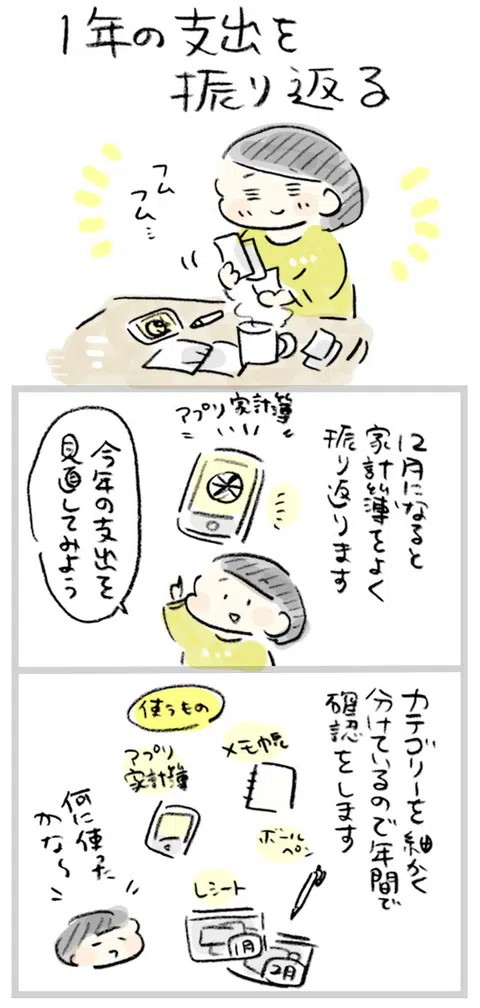 1年の支出を
振り返る
フム
フム…
12月になると
家計簿をよく
振り返ります
アプリ家計簿
今年の支出を
見直してみよう
カテゴリーを細かく
分けているので年間で
確認をします
使うもの
メモ帳
アプリ
家計簿
ボール
ペン
レシート
1月
2月
何に使った
かな〜